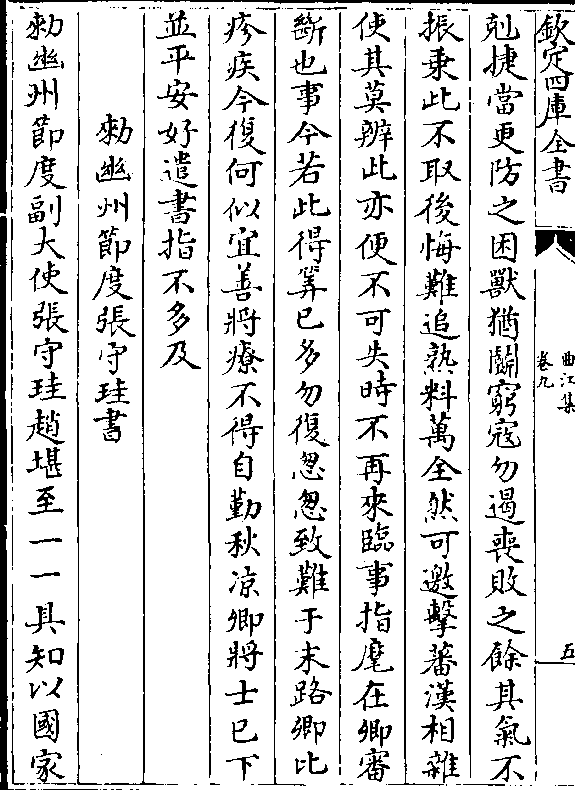 欽定四庫全書
曲江集
卷九
五
剋捷當更防之困獸猶鬭窮寇勿遏喪敗之餘其氣不
振乗此不取後悔難追熟料萬全然可邀擊蕃漢相雜
使其莫辨此亦便不可失時不再來臨事指麾在卿審
斷也事今若此得筭已多勿復怱怱致難于末路卿比
疹疾今復何似宜善將療不得自勤秋凉卿將士已下
並平安好遣書指不多及
勅幽州節度張守珪書
勅幽州節度副大使張守珪趙堪至一一具知以國家